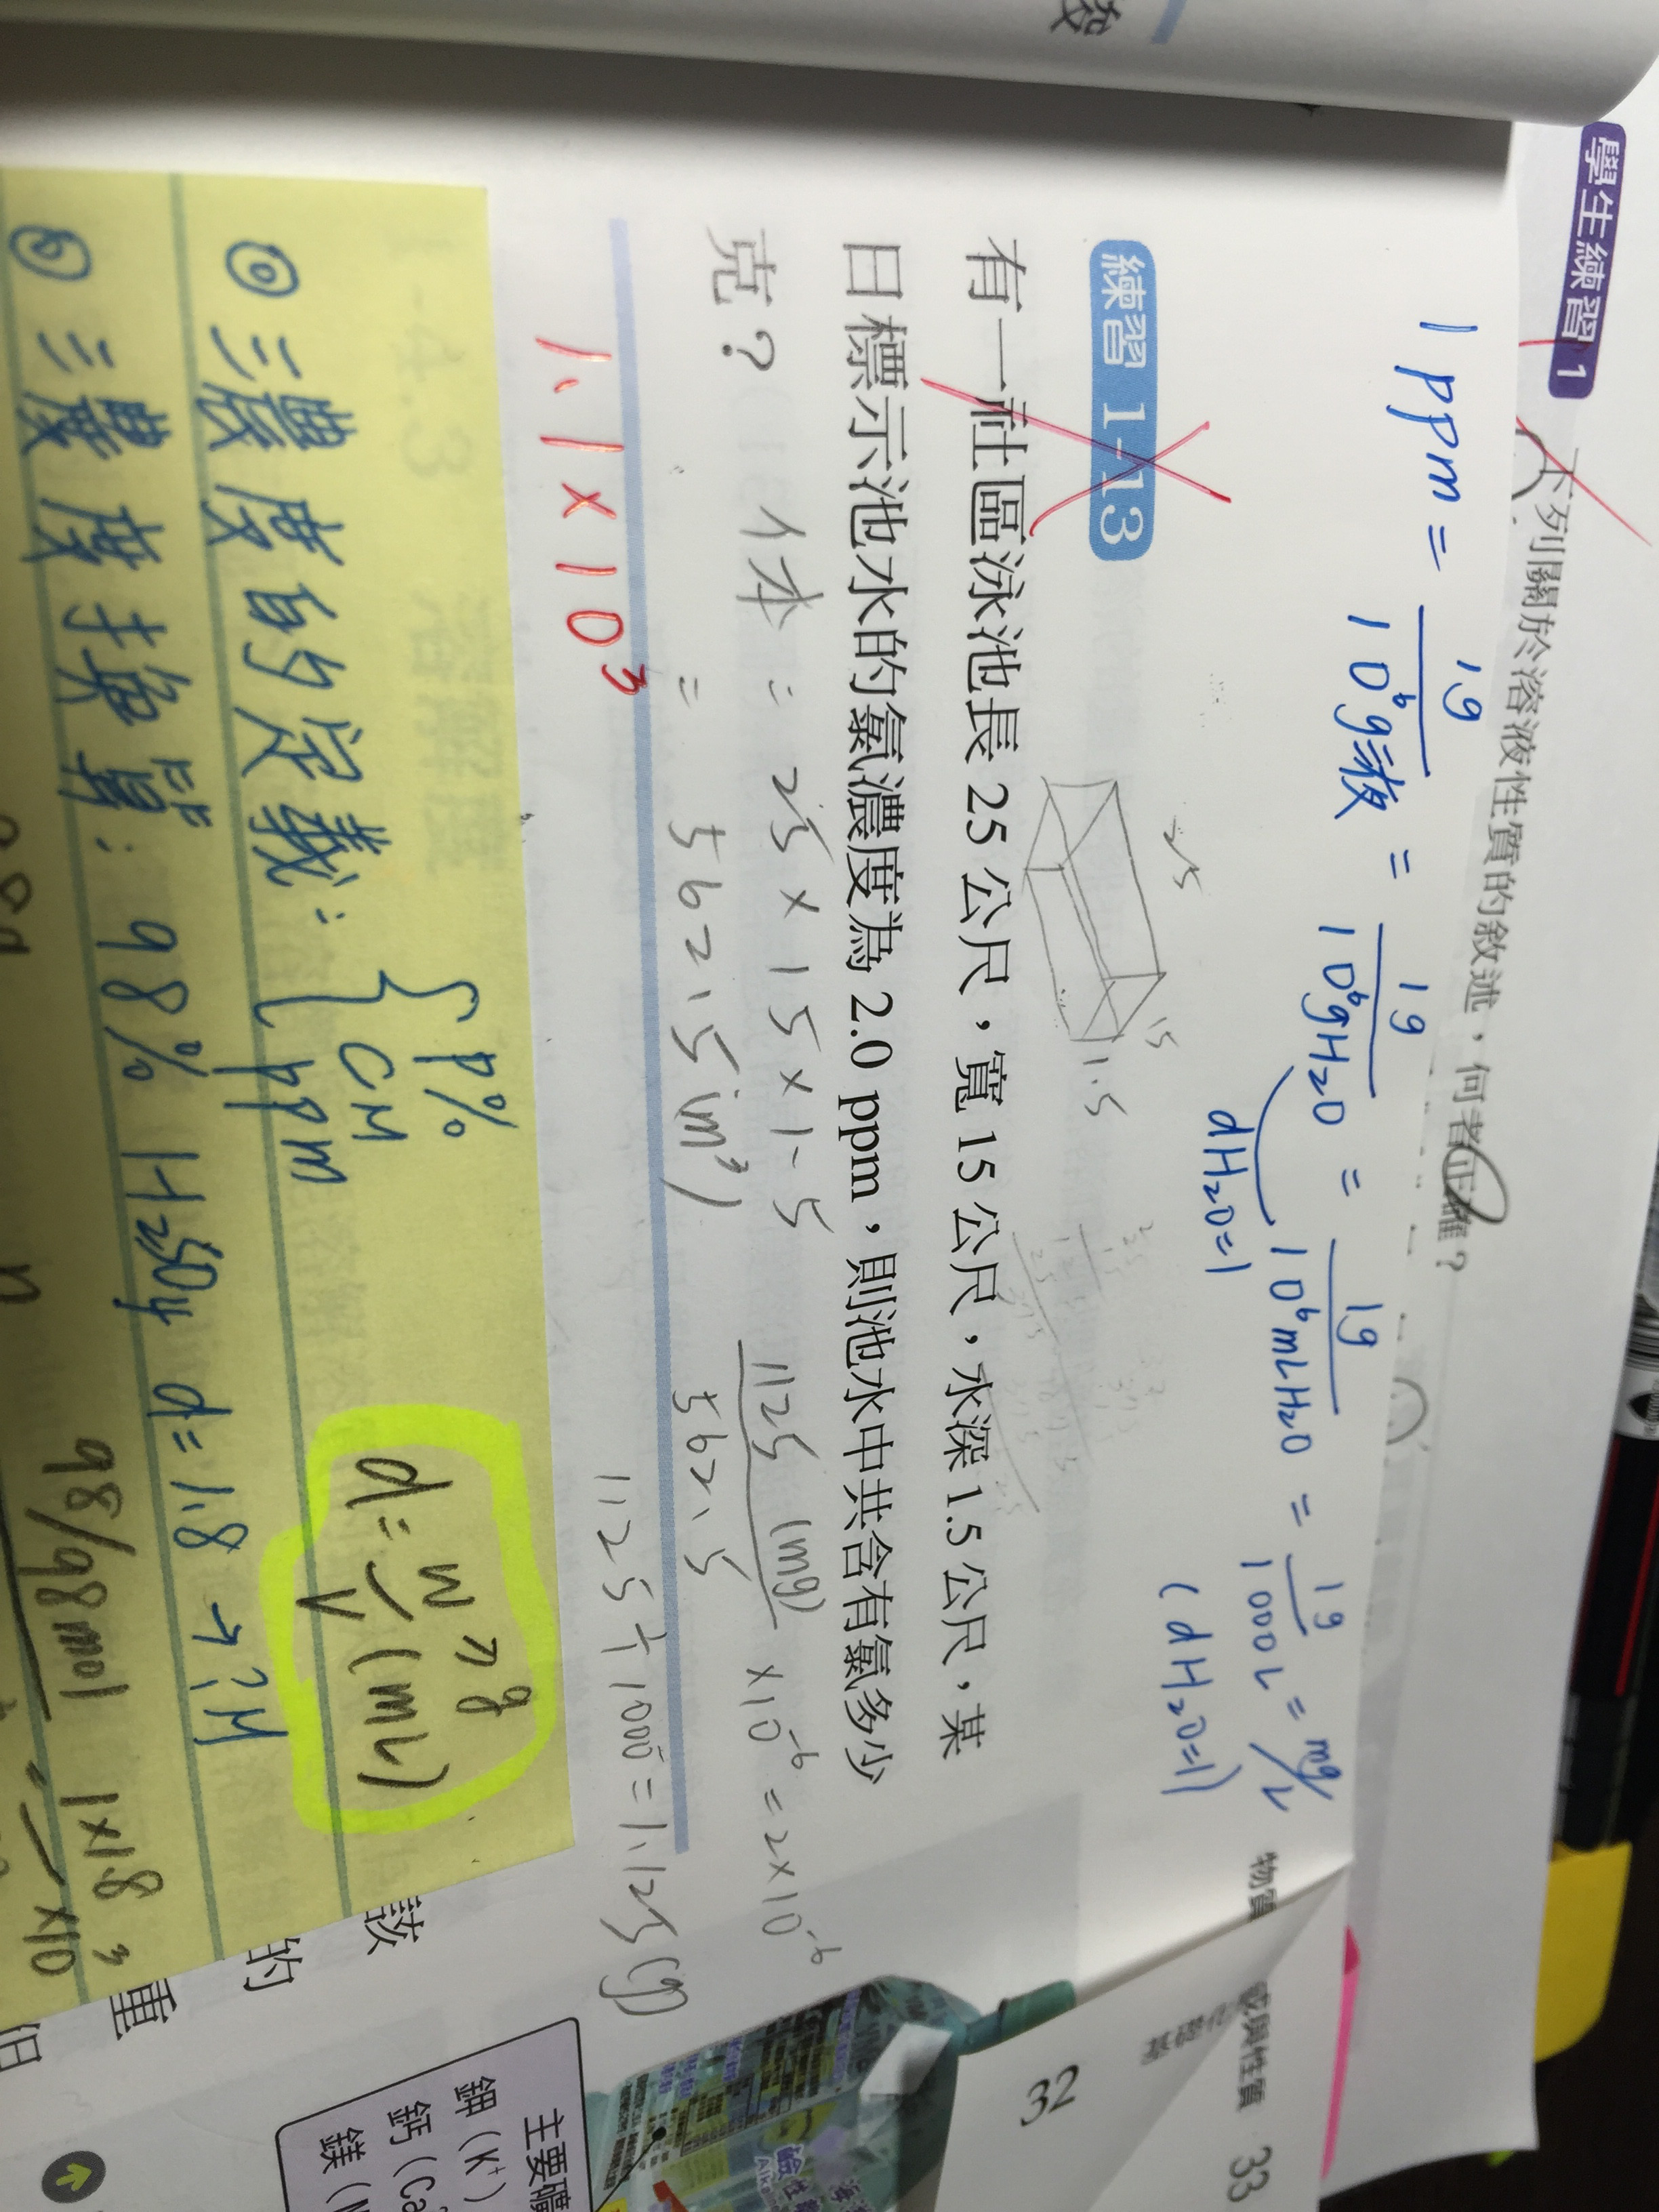 發
學生練習 1
下列關於溶液性質的敘述，何者正確？
1 ppm = 1g / 10⁶g液 = 1g / 10⁶gH₂O = 1g / 10⁶mLH₂O = 1g / 1000L = mg/L
dH₂O=1
(dH₂O=1)
練習 1-13
25
15
1.5
有一社區泳池長 25 公尺，寬 15 公尺，水深 1.5 公尺，某
日標示池水的氯濃度為 2.0 ppm，則池水中共含有氯多少
克？
体 = 25 × 15 × 1.5
= 562.5 (m³)
1125 (mg) / 562.5 ×10⁻⁶ = 2×10⁻⁶
1125 ÷ 1000 = 1.125 (g)
1.1×10³
1-4.3 溶解度
◎ 濃度的定義：{ P% CM ppm
d = w→g / V(mL)
濃度換算：98% H₂SO₄ d=1.8 → ?M
98/98mol
1×1.8
×10
物質
32
33
該
的
重
主要礦
鉀（K⁺）
鈣（Ca
鎂（M
鹼性